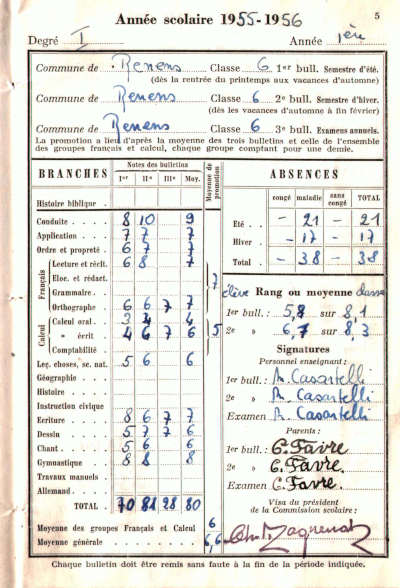 5
Année scolaire 1955-1956
Degré I Année 1ère
Commune de Renens Classe 6 1er bull. Semestre d'été.
(dès la rentrée du printemps aux vacances d'automne)
Commune de Renens Classe 6 2e bull. Semestre d'hiver.
(dès les vacances d'automne à fin février)
Commune de Renens Classe 6 3e bull. Examens annuels.
La promotion a lieu d'après la moyenne des trois bulletins et celle de l'ensemble
des groupes français et calcul, chaque groupe comptant pour une demie.
BRANCHES
Notes des bulletins
Ier IIe IIIe Moy.
Moyenne de promotion
Histoire biblique
Conduite 8 10 9
Application 7 7 7
Ordre et propreté 6 7 7
Français
Lecture et récit. 6 8 7
Eloc. et rédact.
Grammaire
Orthographe 6 6 7 7
7
Calcul
Calcul oral 3 4 4
» écrit 4 6 7 6
Comptabilité
5
Leç. choses, sc. nat. 5 6 6
Géographie
Histoire
Instruction civique
Ecriture 8 6 7 7
Dessin 5 7 7 6
Chant 5 6 6
Gymnastique 8 8 8
Travaux manuels
Allemand
TOTAL 70 81 28 80
Moyenne des groupes Français et Calcul 6
Moyenne générale 6,6
ABSENCES
congé maladie sans congé TOTAL
Eté – 21 – 21
Hiver – 17 – 17
Total – 38 – 38
élève Rang ou moyenne classe
1er bull.: 5,8 sur 8,1
2e » 6,7 sur 8,3
Signatures
Personnel enseignant:
1er bull.: A. Casartelli
2e » A. Casartelli
Examen A. Casartelli
Parents:
1er bull.: C. Favre
2e » C. Favre.
Examen C. Favre.
Visa du président
de la Commission scolaire:
Chaque bulletin doit être remis sans faute à la fin de la période indiquée.